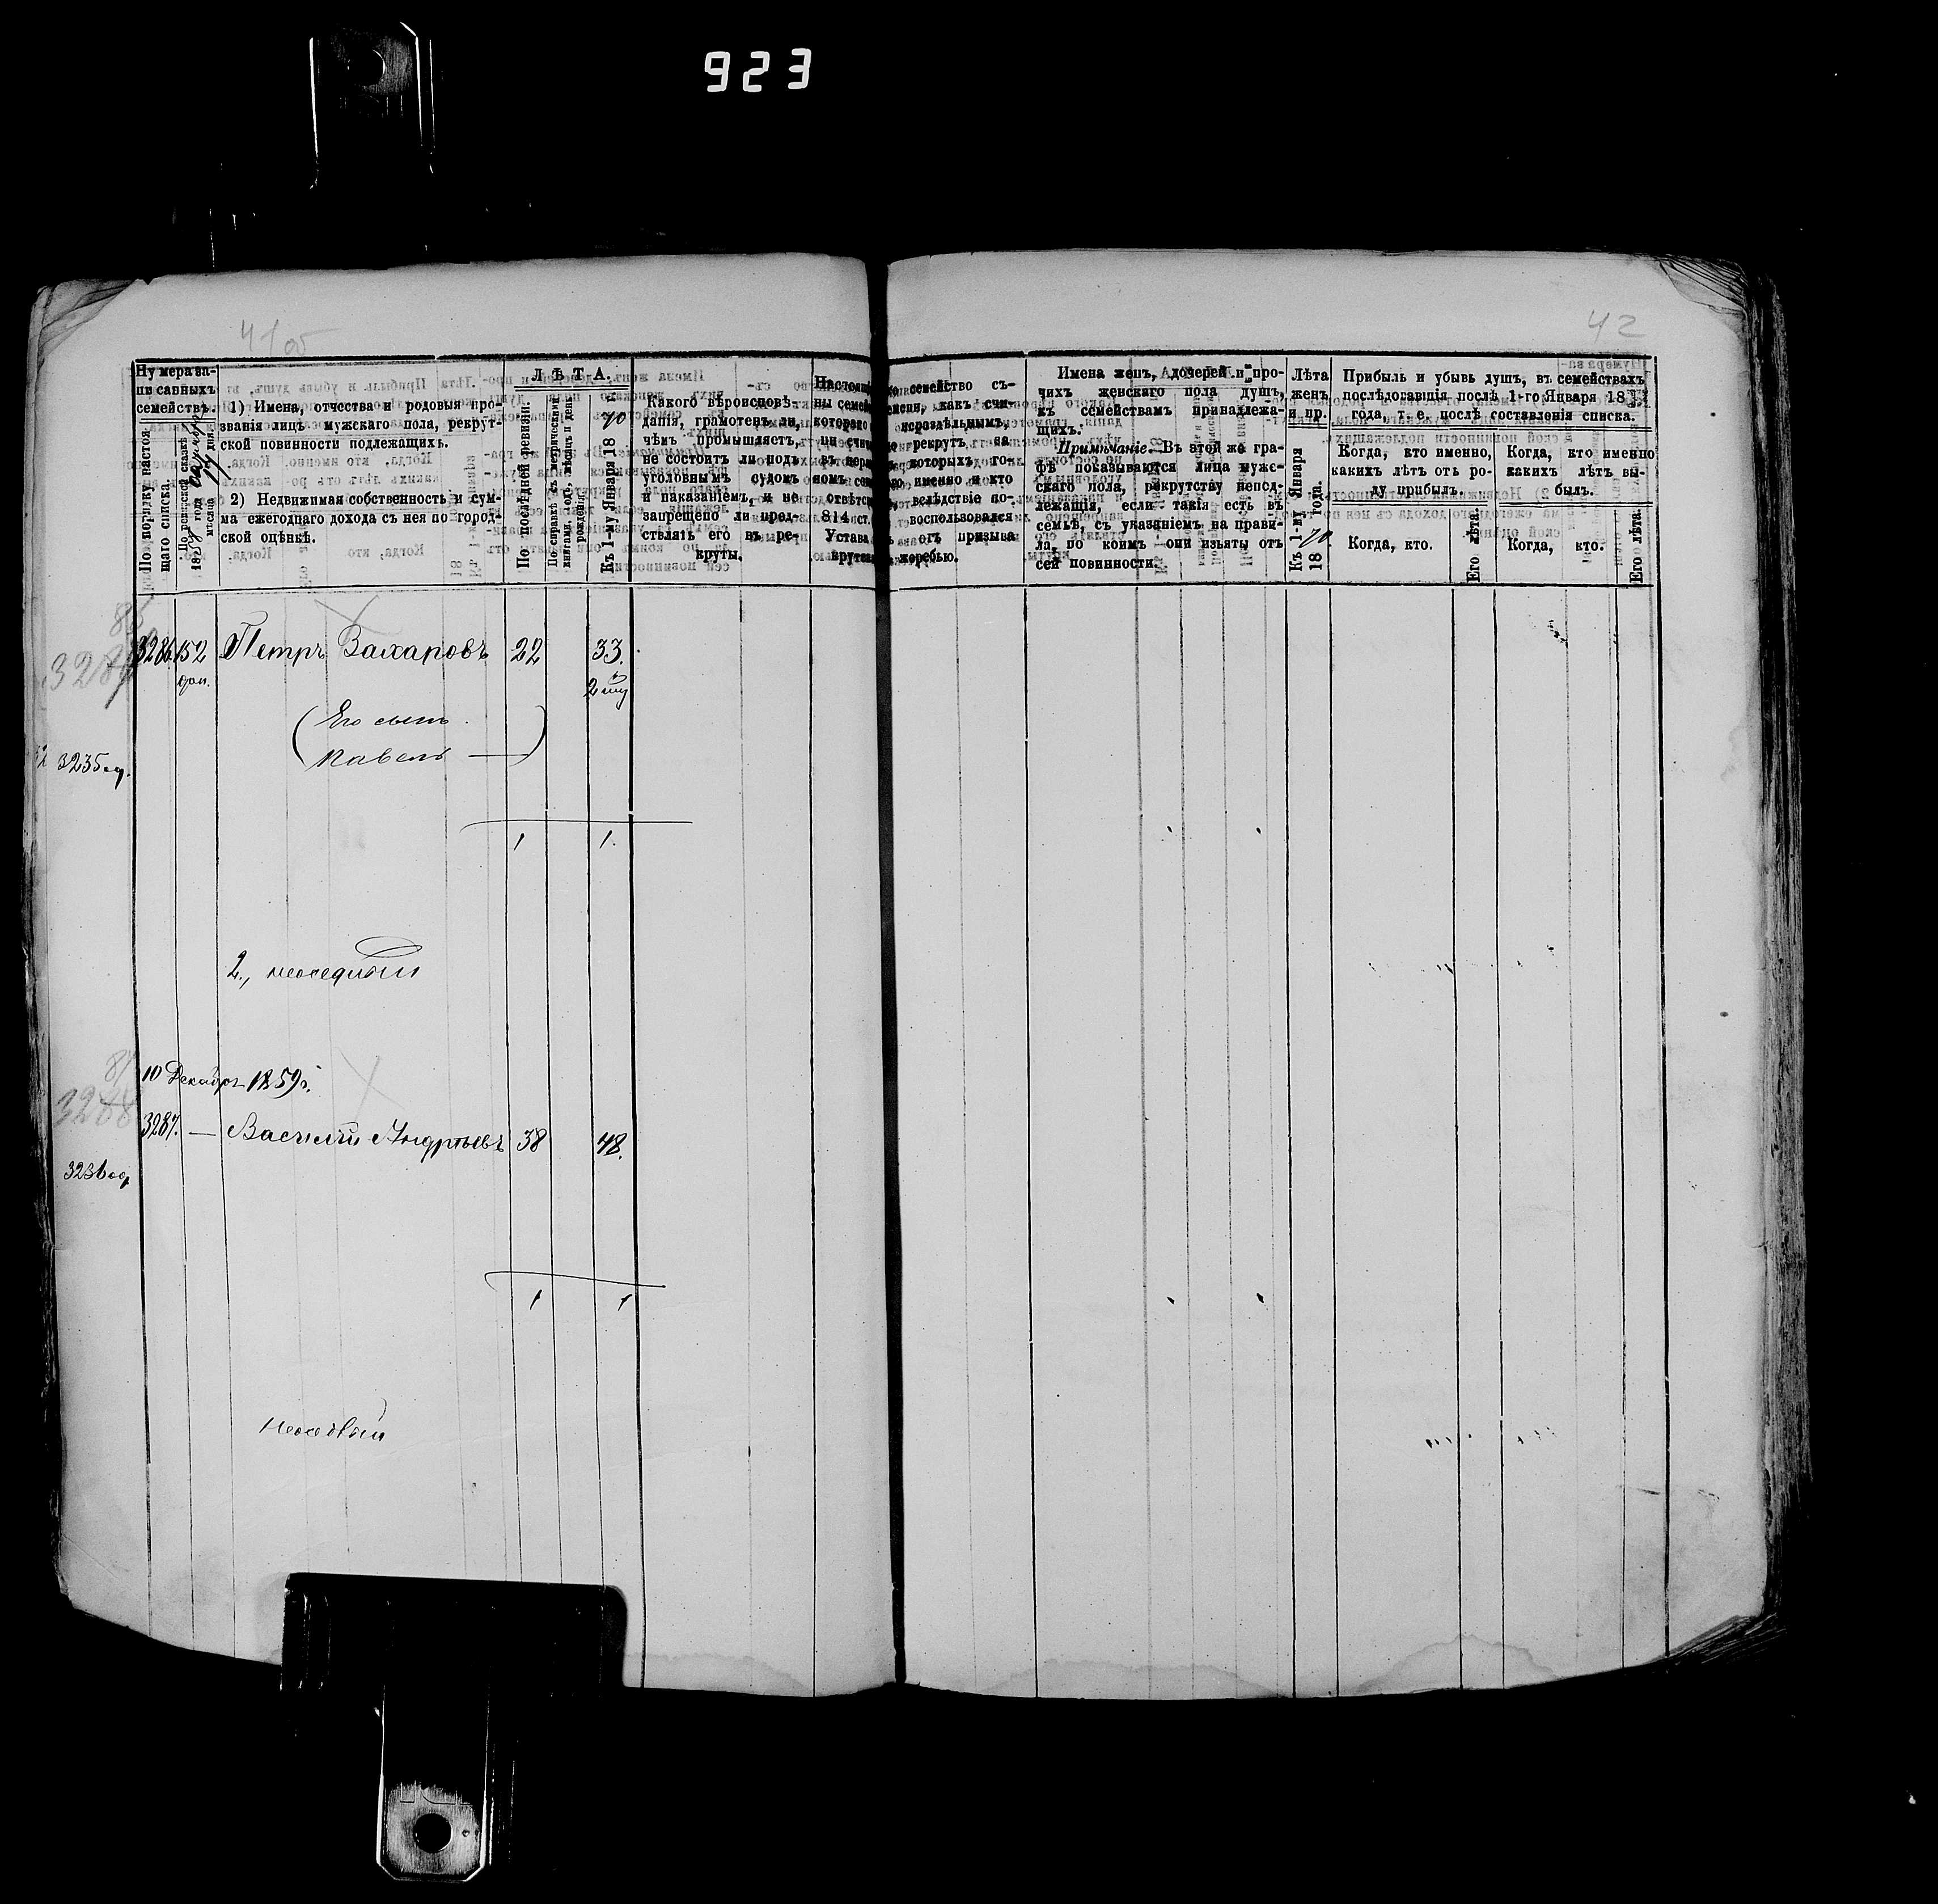 923
41об
42
Нумера за-
писанныхъ
семействъ.
По порядку настоя-
щаго списка.
По ревизской сказкѣ
1) Имена, отчества и родовыя про-
званія лицъ мужскаго пола, рекрут-
ской повинности подлежащихъ.
2) Недвижимая собственность и сум-
ма ежегоднаго дохода съ нея по город-
ской оцѣнкѣ.
ЛѢТА.
По послѣдней ревизіи.
По справкѣ съ метрическими
книгами. Годъ, мѣсяцъ и день
рожденія.
Къ 1-му Января 1870
Какого вѣроисповѣ-
данія, грамотенъ ли,
чѣмъ промышляетъ,
не состоитъ ли подъ
уголовнымъ судомъ
и наказаніемъ, и не
запрещено ли пред-
ставлять его въ ре-
круты.
семейство съ-
какъ счи-
нераздѣльнымъ,
рекрутъ, на
которыхъ го-
именно и кто
вслѣдствіе по-
воспользовался
отъ призыва
жеребью.
Имена женъ, дочерей и про-
чихъ женскаго пола душъ,
къ семействамъ принадлежа-
щихъ.
Примѣчаніе. Въ этой же гра-
фѣ показываются лица муже-
скаго пола, рекрутству непод-
лежащія, если такія есть въ
семьѣ, съ указаніемъ на прави-
ла, по коимъ они изъяты отъ
сей повинности.
Лѣта
женъ
и пр.
Къ 1-му Января
1870 года.
Прибыль и убыль душъ, въ семействахъ
послѣдовавшія послѣ 1-го Января 18
года, т. е. послѣ составленія списка.
Когда, кто именно,
какихъ лѣтъ отъ ро-
ду прибылъ.
Когда, кто именно
какихъ лѣтъ вы-
былъ.
Когда, кто.
Его лѣта.
Когда, кто.
Его лѣта.
3286. 152 Петръ Захаровъ 22 33.
доп.
Его сынъ
Павелъ —
3235
1 1.
2., неоседлый
10 Декабря 1859г.
3287. — Василій Андреевъ 38 48.
3236
1 1
неоседлый